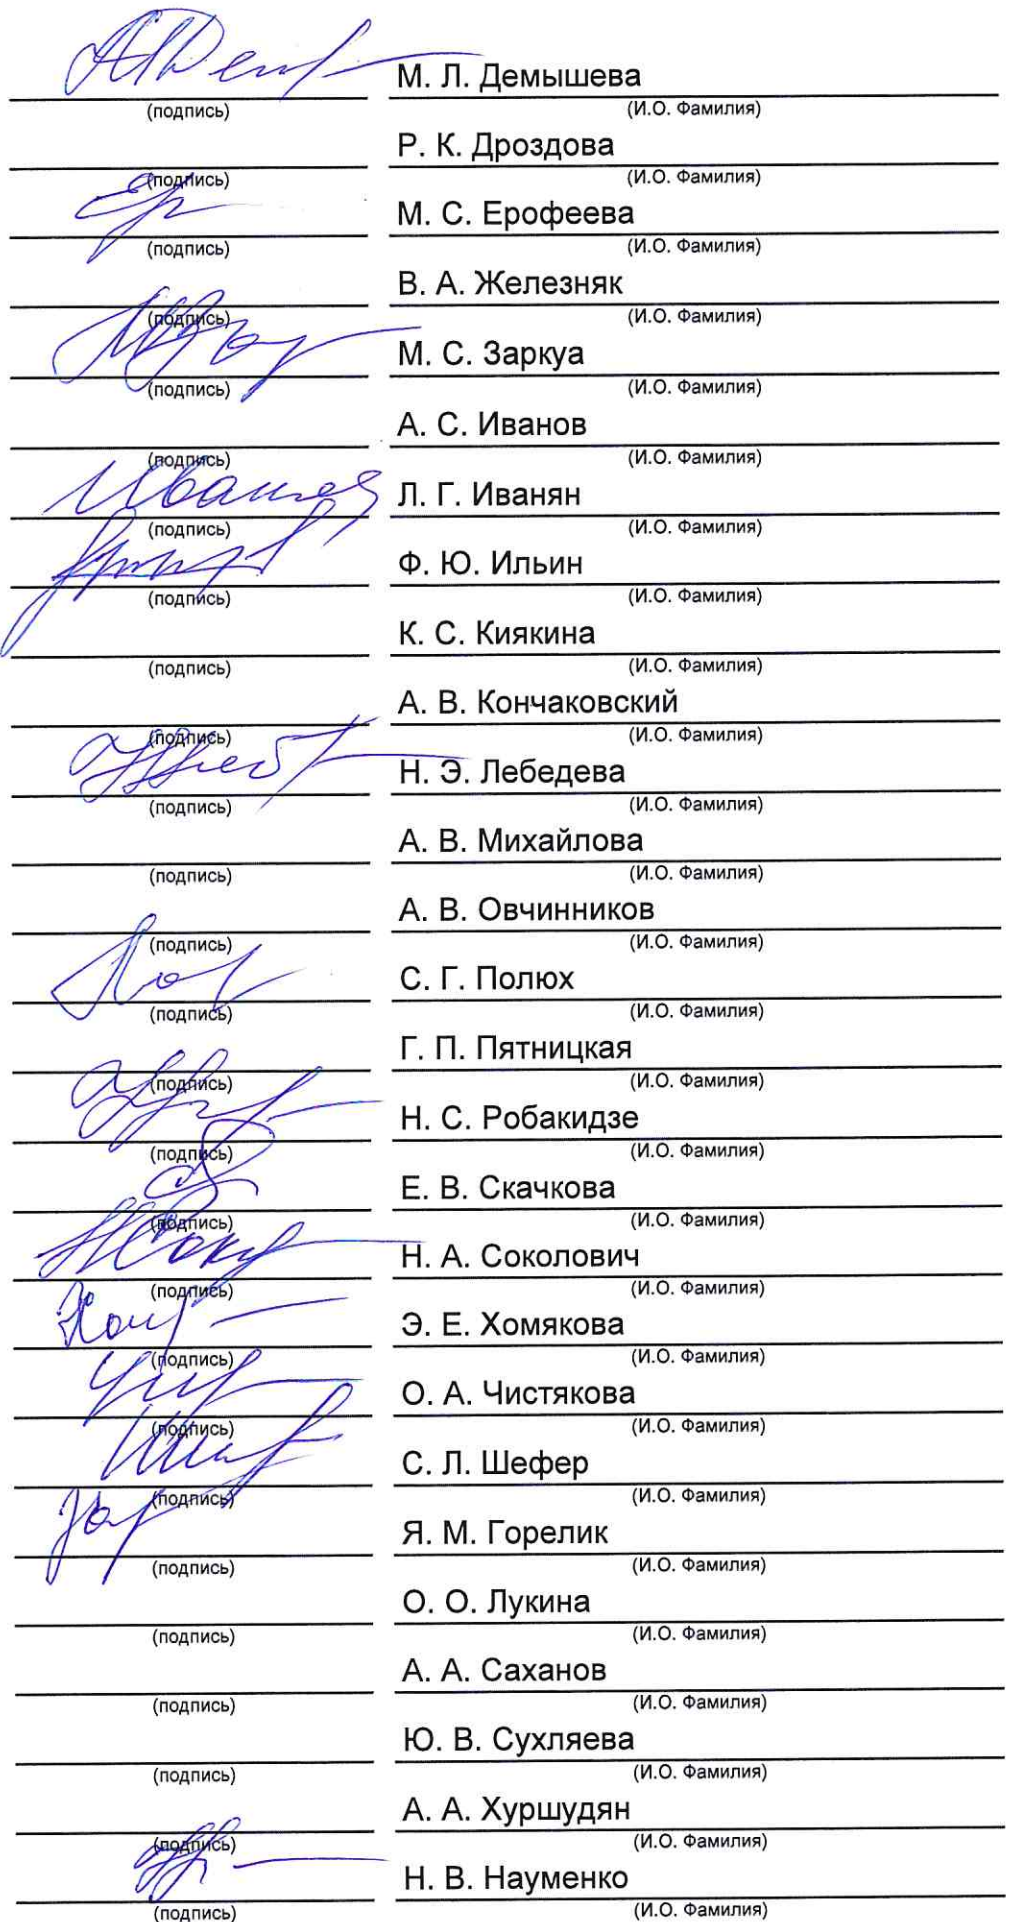 М. Л. Демышева
(подпись) (И.О. Фамилия)
Р. К. Дроздова
(подпись) (И.О. Фамилия)
М. С. Ерофеева
(подпись) (И.О. Фамилия)
В. А. Железняк
(подпись) (И.О. Фамилия)
М. С. Заркуа
(подпись) (И.О. Фамилия)
А. С. Иванов
(подпись) (И.О. Фамилия)
Л. Г. Иванян
(подпись) (И.О. Фамилия)
Ф. Ю. Ильин
(подпись) (И.О. Фамилия)
К. С. Киякина
(подпись) (И.О. Фамилия)
А. В. Кончаковский
(подпись) (И.О. Фамилия)
Н. Э. Лебедева
(подпись) (И.О. Фамилия)
А. В. Михайлова
(подпись) (И.О. Фамилия)
А. В. Овчинников
(подпись) (И.О. Фамилия)
С. Г. Полюх
(подпись) (И.О. Фамилия)
Г. П. Пятницкая
(подпись) (И.О. Фамилия)
Н. С. Робакидзе
(подпись) (И.О. Фамилия)
Е. В. Скачкова
(подпись) (И.О. Фамилия)
Н. А. Соколович
(подпись) (И.О. Фамилия)
Э. Е. Хомякова
(подпись) (И.О. Фамилия)
О. А. Чистякова
(подпись) (И.О. Фамилия)
С. Л. Шефер
(подпись) (И.О. Фамилия)
Я. М. Горелик
(подпись) (И.О. Фамилия)
О. О. Лукина
(подпись) (И.О. Фамилия)
А. А. Саханов
(подпись) (И.О. Фамилия)
Ю. В. Сухляева
(подпись) (И.О. Фамилия)
А. А. Хуршудян
(подпись) (И.О. Фамилия)
Н. В. Науменко
(подпись) (И.О. Фамилия)